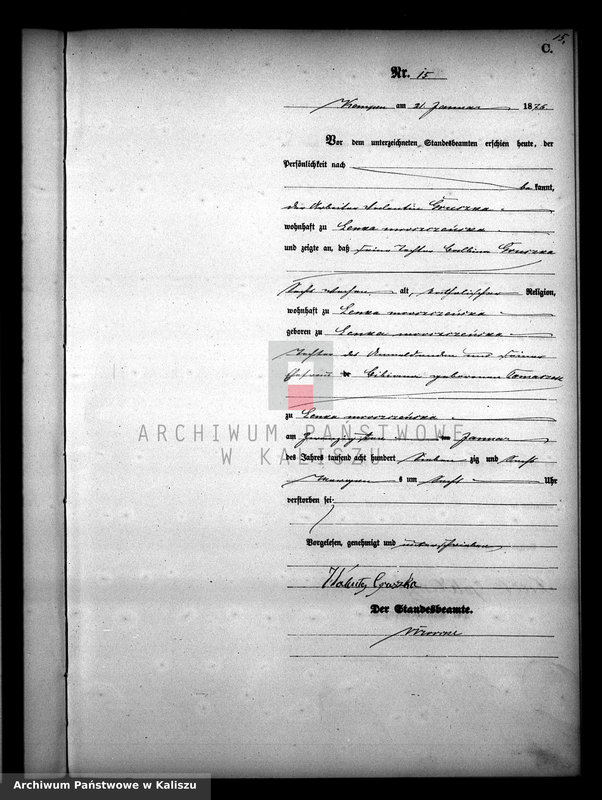 15.
C.
Nr. 15
Kempen am 21 Januar 1876
Vor dem unterzeichneten Standesbeamten erschien heute, der
Persönlichkeit nach
bekannt,
der Arbeiter Valentin Gruszka
wohnhaft zu Lenka mroszczeńska
und zeigte an, daß seine Tochter Balbina Gruszka
sechs Wochen alt, katholischer Religion,
wohnhaft zu Lenka mroszczeńska
geboren zu Lenka mroszczeńska
Tochter des Anmeldenden und seiner
Ehefrau geborenen Tomaszek
zu Lenka mroszczeńska
am zwanzigsten Januar
des Jahres tausend acht hundert siebenzig und sechs
Morgens um sechs Uhr
verstorben sei
Vorgelesen, genehmigt und unterschrieben
Gruszka
Der Standesbeamte.
ARCHIWUM PAŃSTWOWE
W KALISZU
Archiwum Państwowe w Kaliszu